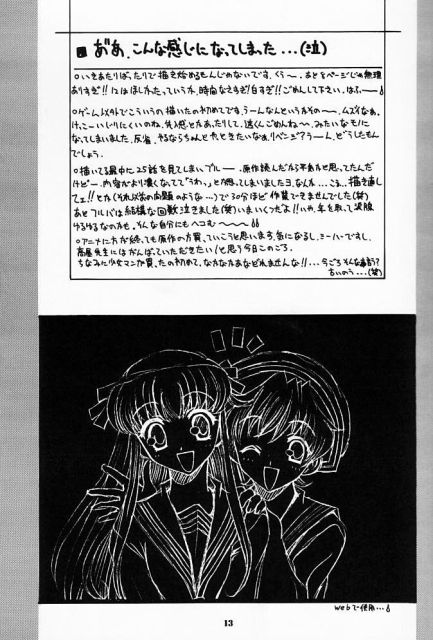 おあ、こんな感じになってしまった...(泣)
○いきあたりばったりで描き始めるもんじゃないです。くぅ〜。あと8ページじゃ無理
ありすぎ!! 12はほしかったっていうか、時間なさすぎ!白すぎ!!ごめんして下さい。はふ〜
○ゲーム以外でこういうの描いたの初めてです。うーんなんというかその〜、ムズイなぁ。
けっこーいじりにくいのね。先入感とかあったりして。遠くんごめんね〜、みたいなモノに
なってしまいました。反省。やるならちゃんと
でしょう。
○描いてる最中に25話を見てしまいブルー。原作読んだから平気かと思ってたんだ
けどー。内容がより濃くなってて「うわっ」と
フェ!!とか(それ以前の問題のような...)で30分ほど作業できませんでした(笑)
あとフルバは結構な回数泣きました(笑)いまいくつだよ!!いや、年を取って涙腺
ゆるゆるなのかも。そんな自分にもヘコむ〜〜〜
○アニメに方が終っても原作の方買っていこうと思います。気になるし。ミーハーですし。
高屋先生にはがんばっていただきたい!と思う今日このごろ。
ちなみに少女マンガ買ったの初めて。なかなかあなどれませんな!!...今ごろそんな事言う?
古いのう...(笑)
Webで使用...
13